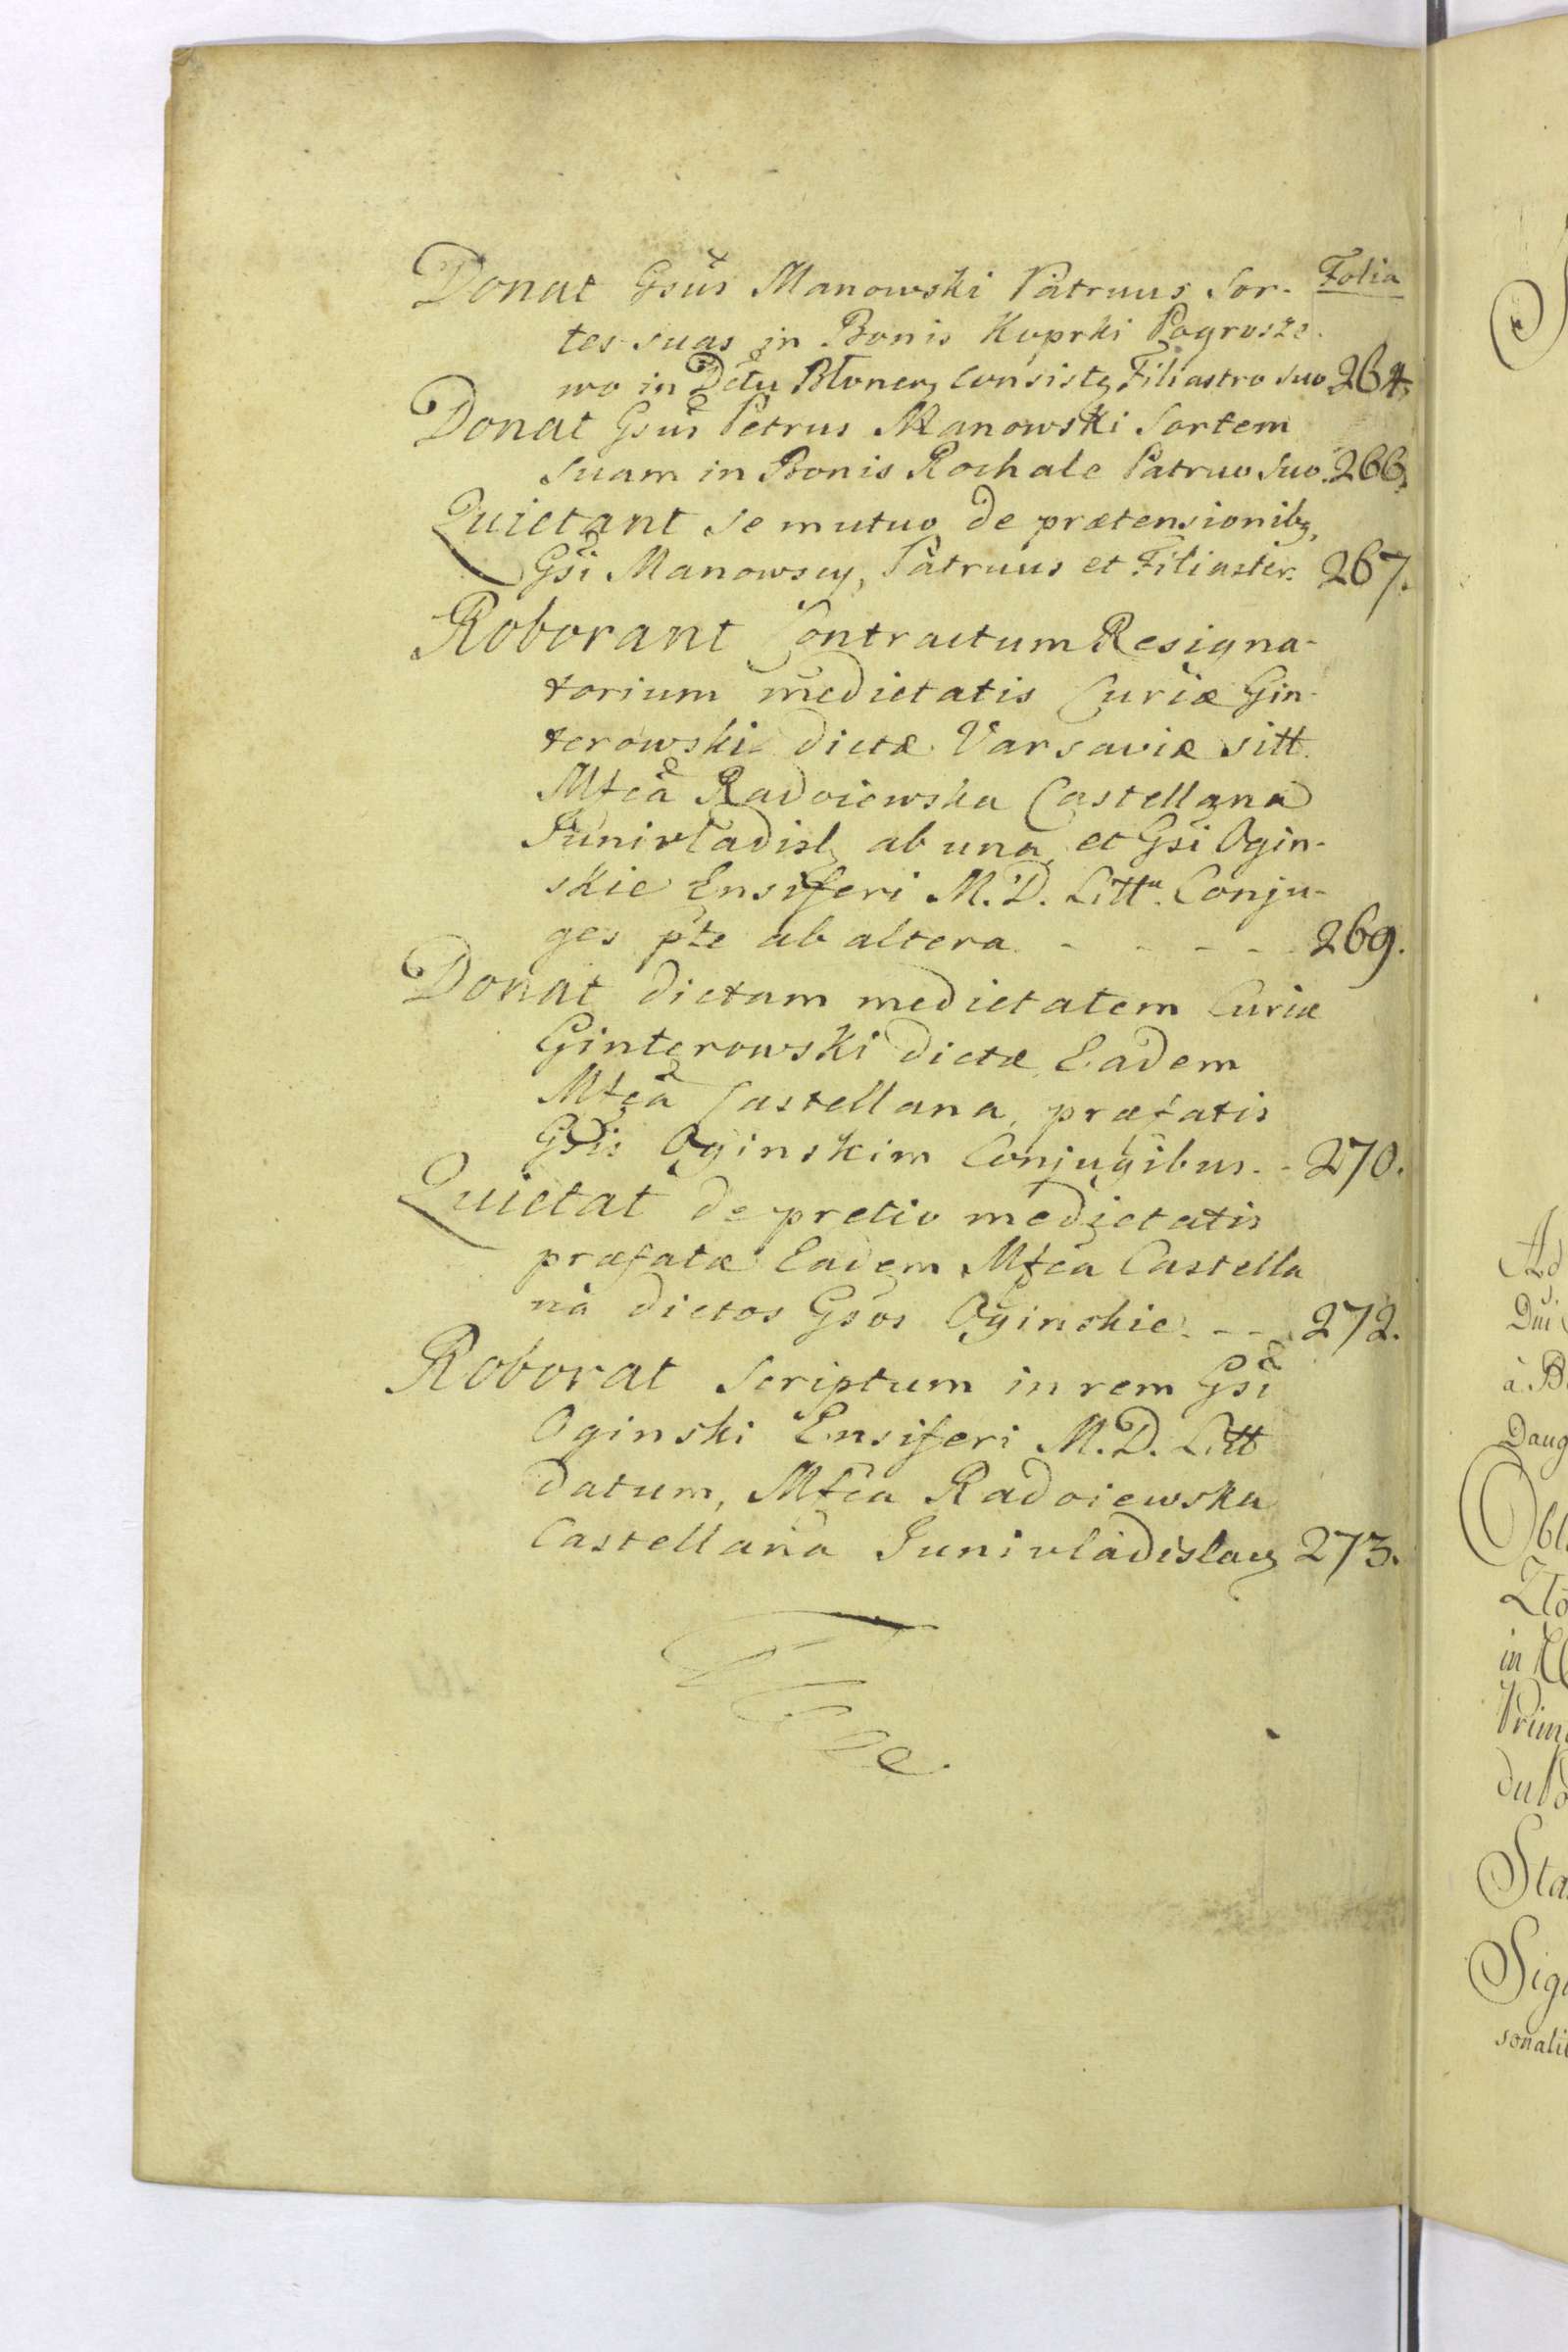 Folia
Donat Gsus Manowski Patruus Sor-
tes suas in Bonis Koprki Pogrosze-
wo in Dctu Błonen, Consist, Filiastro suo 264.
Donat Gsus Petrus Manowski Sortem
suam in Bonis Rochale Patruo suo. 266.
Quietant se mutuo de prætensionibq,
Gsi Manowscy, Patruus et Filiaster. 267.
Roborant Contractum Resigna-
torium medietatis Curiæ Gin-
terowski dictæ Varsaviæ sitt.
Mfca Radoiewska Castellana
Junivladisl, ab una, et Gsi Ogin-
skie Ensiferi M. D. Litt. Conju-
ges pte ab altera - - - - 269.
Donat dictam medietatem Curiæ
Ginterowski dictæ Eadem
Mfca Castellana, præfatis
Gsis Oginskim Conjugibus. - 270.
Quietat de pretio medietatis
præfatæ Eadem Mfca Castella
na dictos Gsos Oginskie. - - 272.
Roborat Scriptum in rem Gsi
Oginski Ensiferi M. D. Litt
datum, Mfca Radoiewska
Castellana Junivladislav, 273.